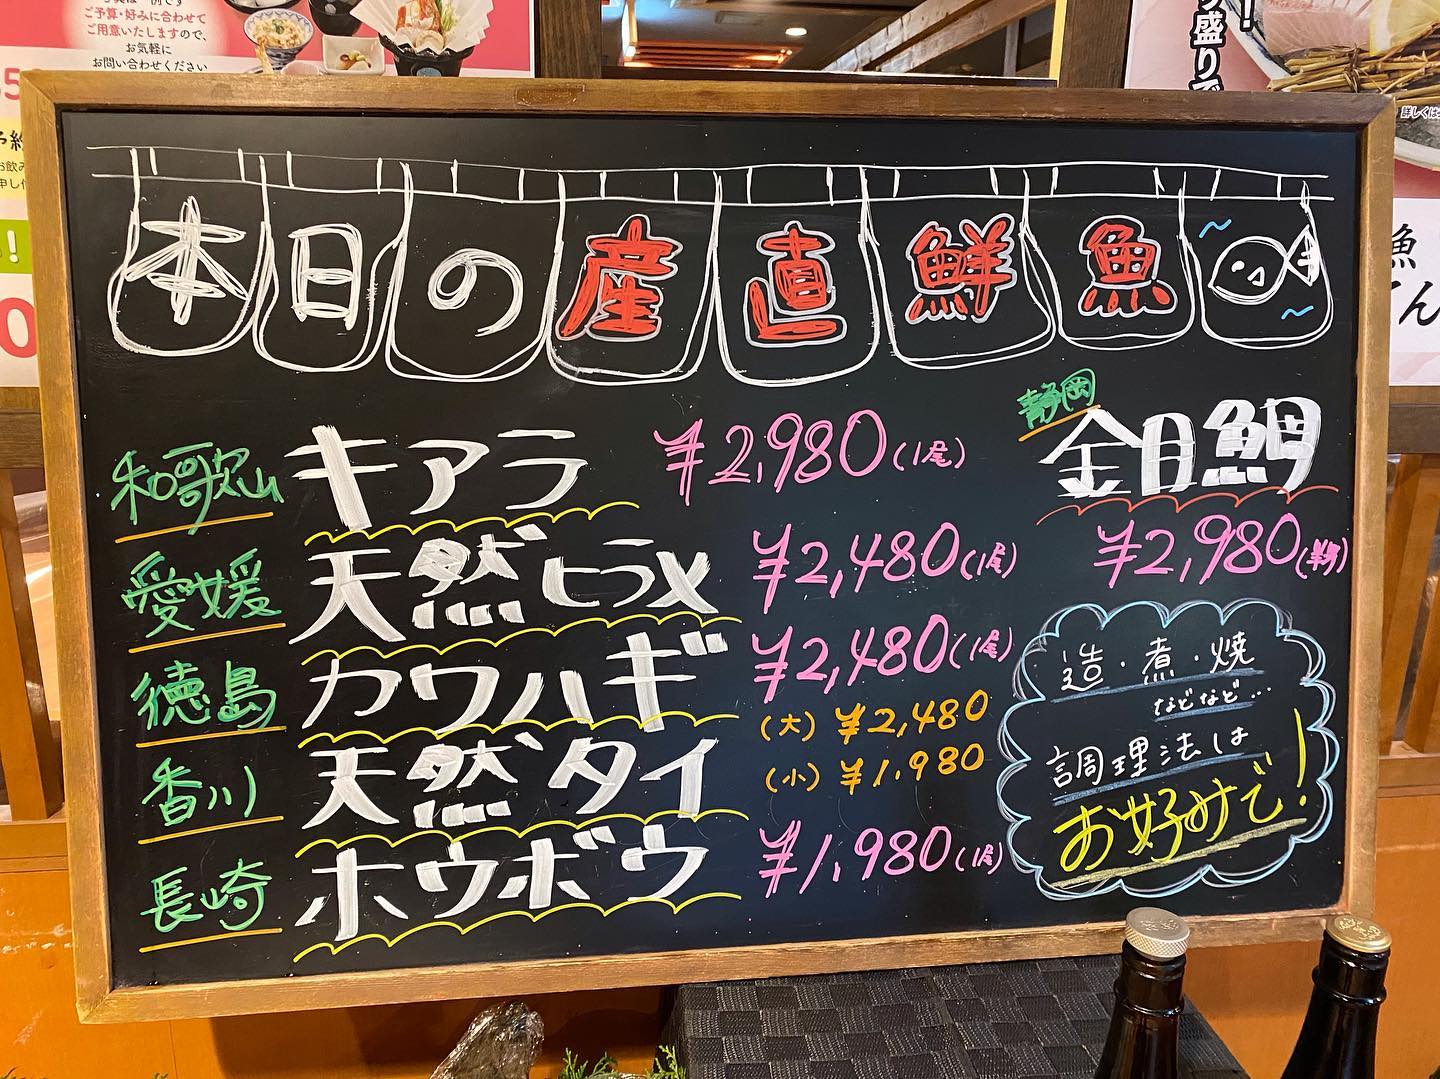 写真は一例です
ご予算・好みに合わせて
ご用意いたしますので、
お気軽に
お問い合わせください
盛りで
詳しくは
本日の産直鮮魚
和歌山 キアラ ¥2,980(1尾)
愛媛 天然ヒラメ ¥2,480(1尾)
徳島 カワハギ ¥2,480(1尾)
香川 天然タイ (大) ¥2,480
(小) ¥1,980
長崎 ホウボウ ¥1,980(1尾)
静岡 金目鯛
¥2,980(半身)
造・煮・焼
などなど…
調理法は
お好みで!